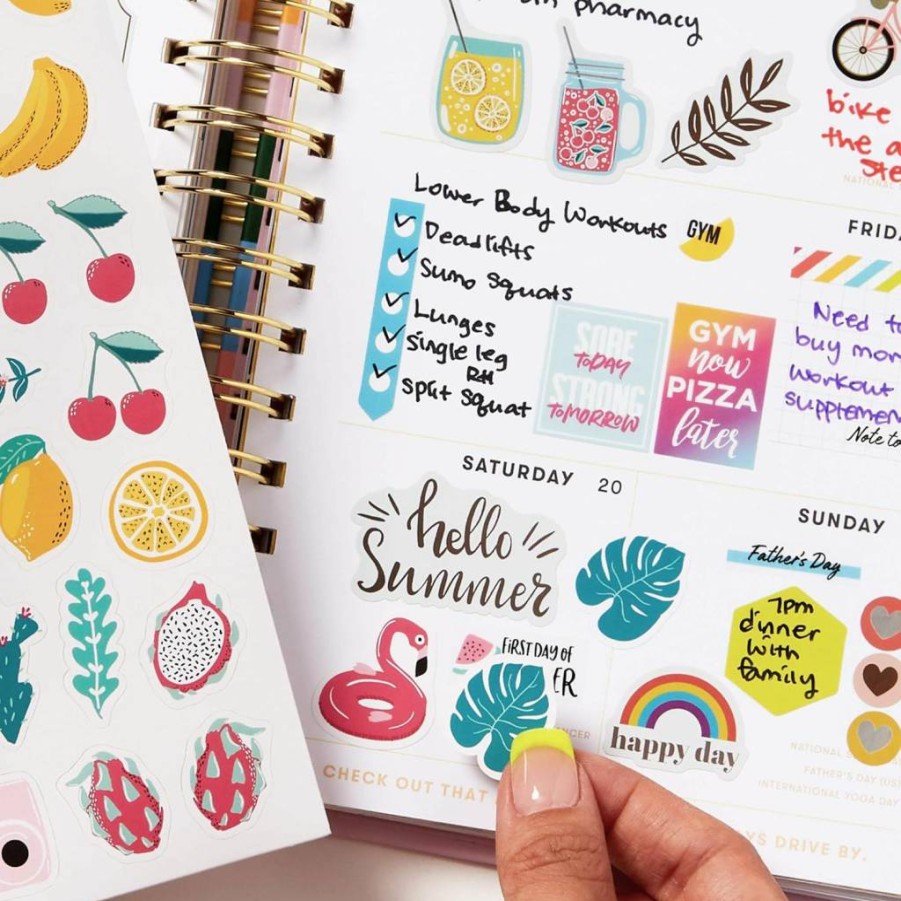 pharmacy
bike
the a
Ste
Lower Body Workouts
GYM
✓ Deadlifts
✓ Sumo Squats
✓ Lunges
✓ Single leg
RH
✓ Split Squat
SORE
TODAY
STRONG
TOMORROW
GYM
now
PIZZA
later
FRIDA
Need to
buy mor
workout
supplemen
Note to
SATURDAY 20
hello
Summer
FIRST DAY OF
ER
SUNDAY
Father's Day
7pm
dinner
with
family
happy day
NATIONAL
FATHER'S DAY
INTERNATIONAL YOGA DAY
CHECK OUT THAT
YS DRIVE BY.